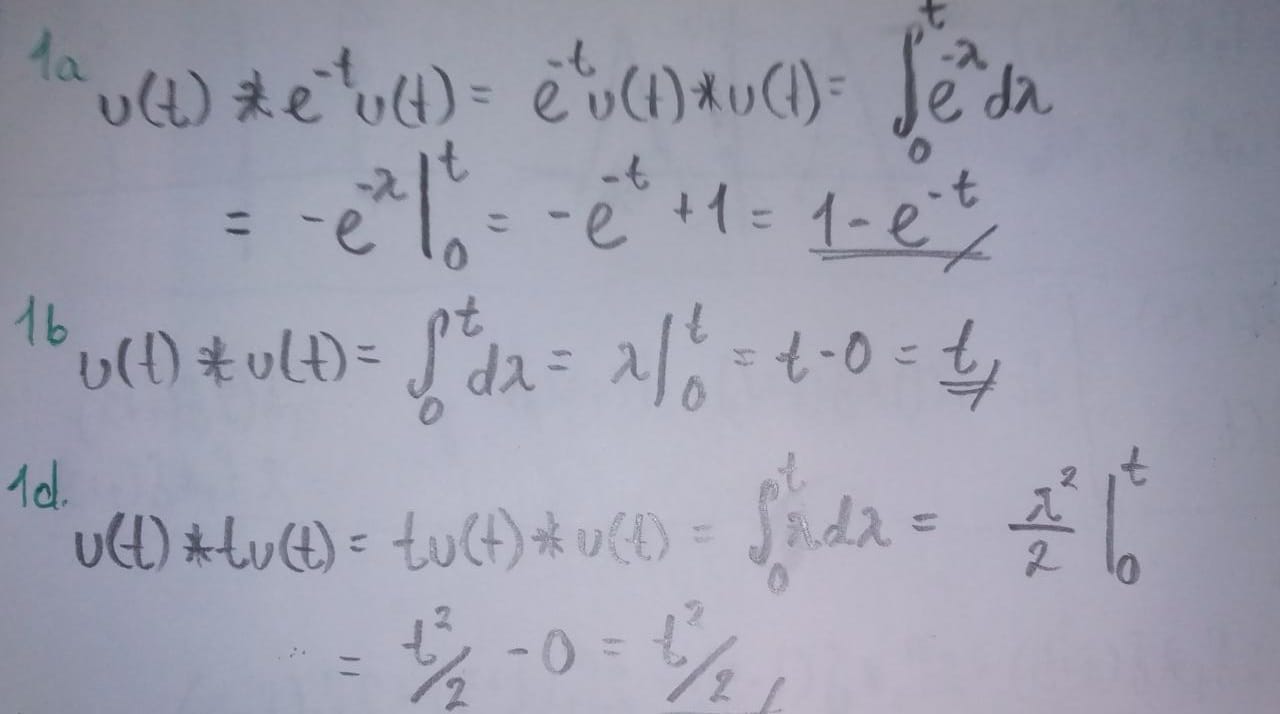 1a u(t) * e^-t u(t) = e^-t u(t) * u(t) = ∫_0^t e^-λ dλ
= -e^-λ |_0^t = -e^-t + 1 = 1 - e^-t
1b u(t) * u(t) = ∫_0^t dλ = λ |_0^t = t - 0 = t
1d. u(t) * tu(t) = tu(t) * u(t) = ∫_0^t λ dλ = λ²/2 |_0^t
= t²/2 - 0 = t²/2